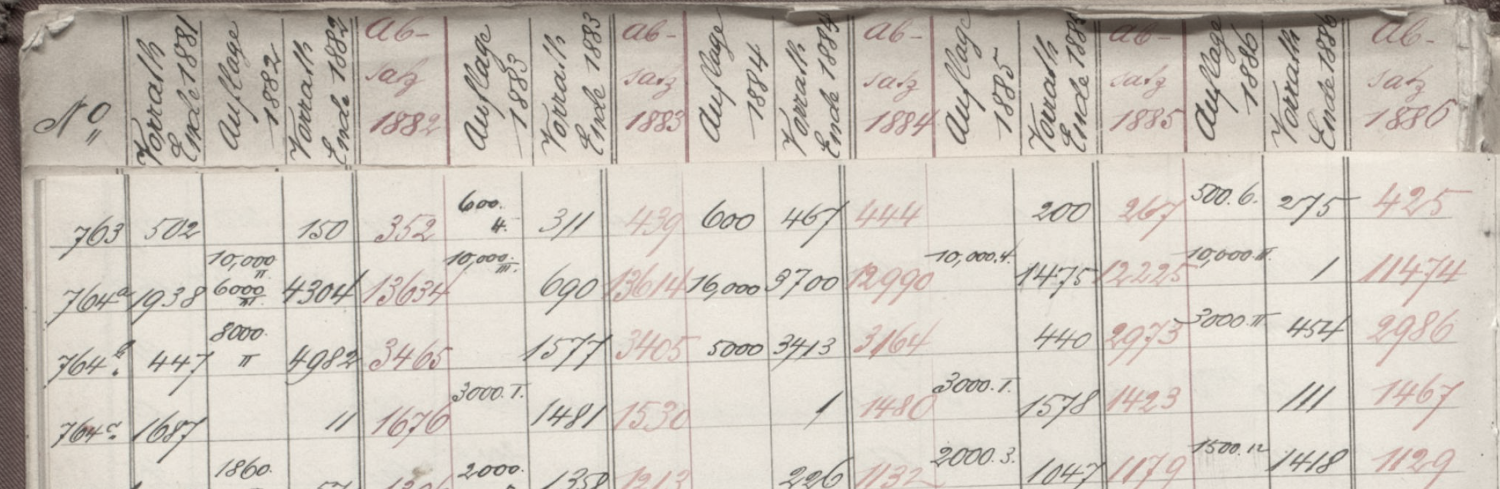 No Vorrath Ende 1881 Auflage 1882 Vorrath Ende 1882 Ab-satz 1882 Auflage 1883 Vorrath Ende 1883 Ab-satz 1883 Auflage 1884 Vorrath Ende 1884 Ab-satz 1884 Auflage 1885 Vorrath Ende 1885 Ab-satz 1885 Auflage 1886 Vorrath Ende 1886 Ab-satz 1886
763 502 150 352 600. 4. 311 439 600 467 444 200 267 500.6. 275 425
764a 1938 10,000 II 6000 III 4304 13634 10,000. III. 690 13614 16,000 3700 12990 10,000.4. 1475 12225 10,000.II. 1 11474
764b. 447 8000. II 4982 3465 1577 3405 5000 3413 3164 440 2973 3000.II. 454 2986
764c. 1687 11 1676 3000.I. 1481 1530 1 1480 3000.I. 1578 1423 111 1467
1860. 2000. 1358 1213 226 1132 2000.3. 1047 1179 1500.12 1418 1129